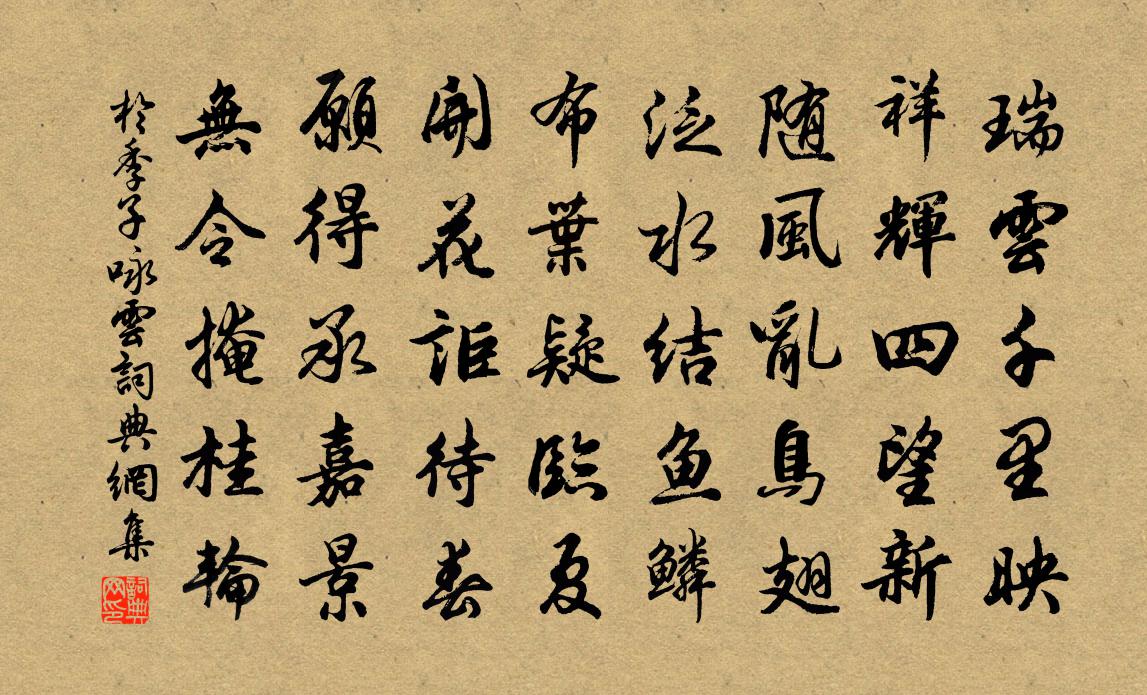 瑞雲千里映
祥輝四望新
隨風亂鳥翅
泛水結魚鱗
布葉疑臨夏
開花詎待春
願得承嘉景
無令掩桂輪
於季子咏雲詞典網集
詞典
网印